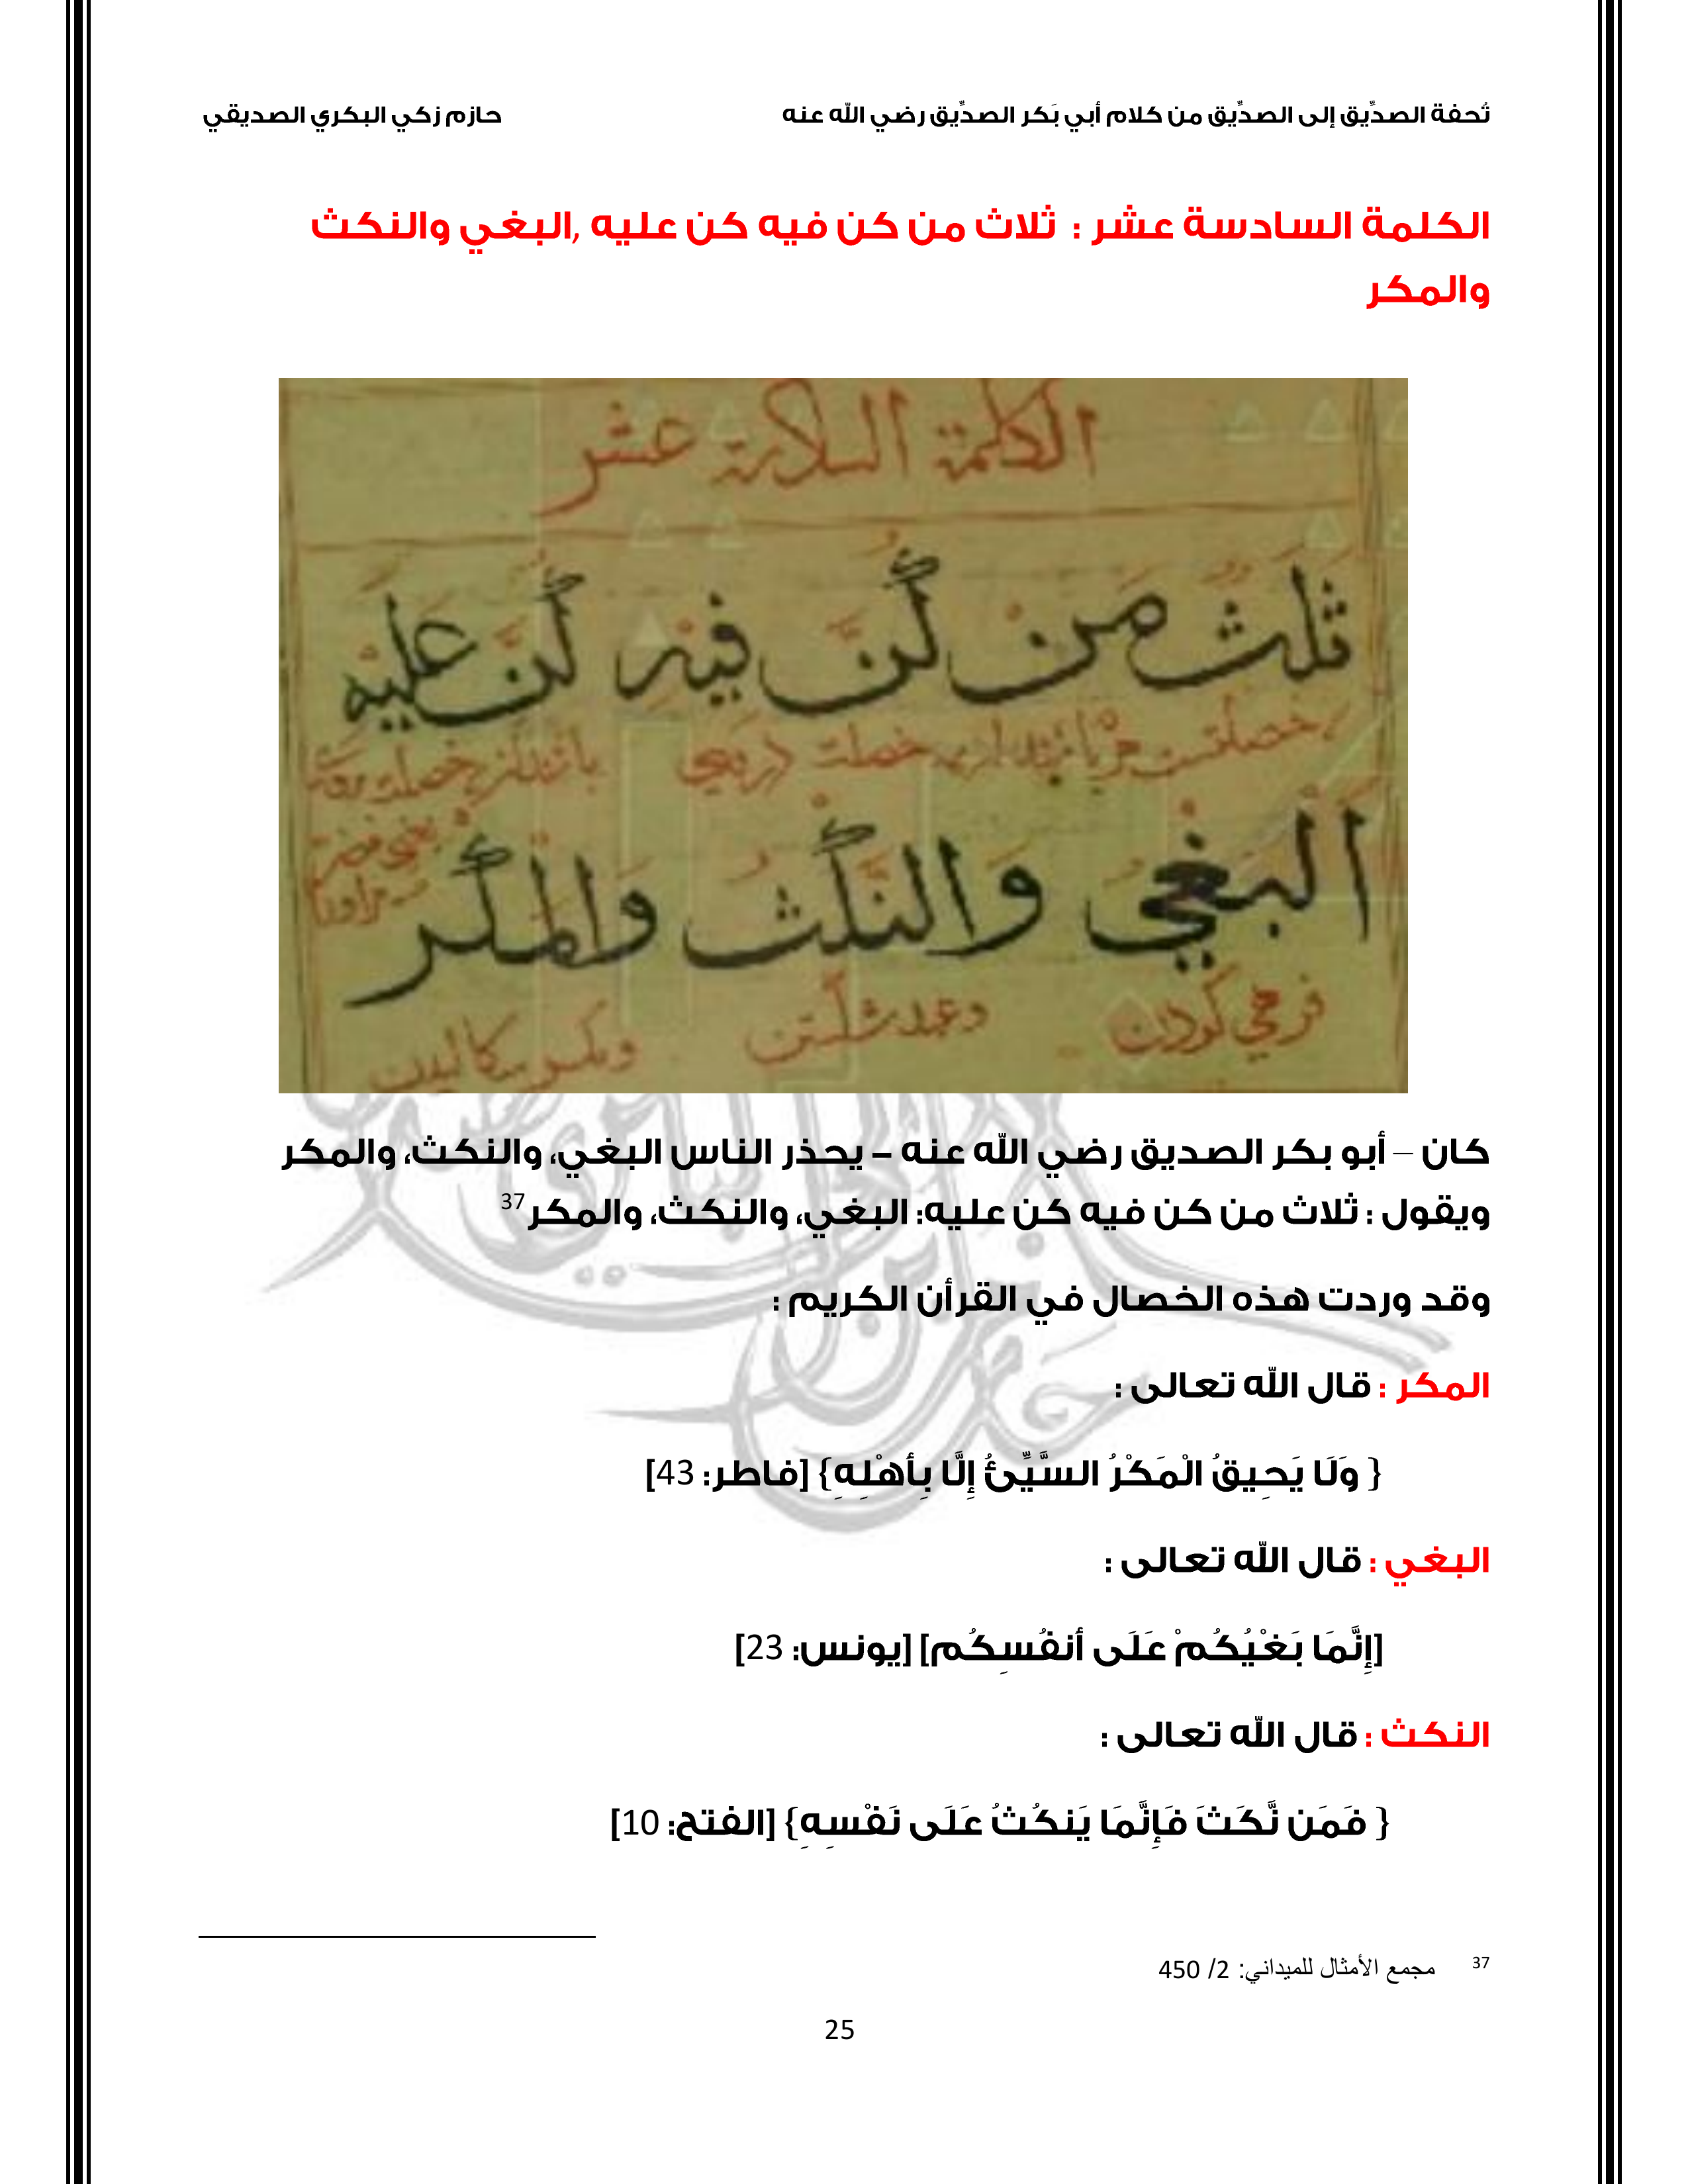 تُحفة الصدِّيق إلى الصدِّيق من كلام أبي بَكر الصدِّيق رضي الله عنه حازم زكي البكري الصديقي
الكلمة السادسة عشر : ثلاث من كن فيه كن عليه ,البغي والنكث
والمكر
الكلمة السادسة عشر
ثَلٰثٌ مَنْ كُنَّ فِيْهِ كُنَّ عَلَيْهِ
اَلْبَغْيُ وَالنَّكْثُ وَالْمَكْرُ
وعهد شكستن
كان – أبو بكر الصديق رضي الله عنه – يحذر الناس البغي، والنكث، والمكر
ويقول : ثلاث من كن فيه كن عليه: البغي، والنكث، والمكر37
وقد وردت هذه الخصال في القرأن الكريم :
المكر : قال الله تعالى :
{ وَلَا يَحِيقُ الْمَكْرُ السَّيِّئُ إِلَّا بِأَهْلِهِ} [فاطر: 43]
البغي : قال الله تعالى :
[إِنَّمَا بَغْيُكُمْ عَلَى أنفُسِكُم] [يونس: 23]
النكث : قال الله تعالى :
{ فَمَن نَّكَثَ فَإِنَّمَا يَنكُثُ عَلَى نَفْسِهِ} [الفتح: 10]
37 مجمع الأمثال للميداني: 2/ 450
25